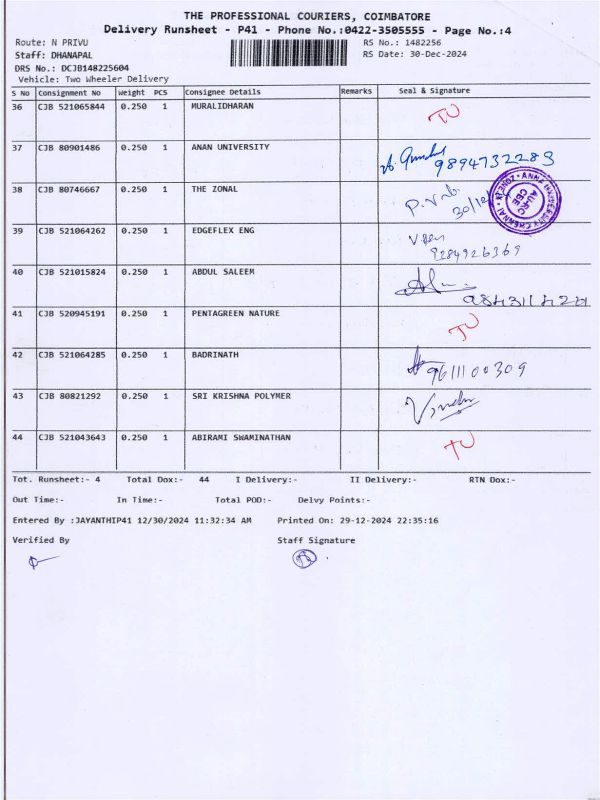 THE PROFESSIONAL COURIERS, COIMBATORE
Delivery Runsheet - P41 - Phone No.:0422-3505555 - Page No.:4
Route: N PRIVU RS No.: 1482256
Staff: DHANAPAL RS Date: 30-Dec-2024
DRS No.: DCJB148225604
Vehicle: Two Wheeler Delivery
S No Consignment No Weight PCS Consignee Details Remarks Seal & Signature
36 CJB 521065844 0.250 1 MURALIDHARAN TU
37 CJB 80901486 0.250 1 ANAN UNIVERSITY 9894732283
38 CJB 80746667 0.250 1 THE ZONAL
39 CJB 521064262 0.250 1 EDGEFLEX ENG 9284926369
40 CJB 521015824 0.250 1 ABDUL SALEEM
41 CJB 520945191 1 0.250 PENTAGREEN NATURE TU
42 CJB 521064285 0.250 1 BADRINATH 9611100309
43 CJB 80821292 0.250 1 SRI KRISHNA POLYMER
44 CJB 521043643 0.250 1 ABIRAMI SWAMINATHAN TU
Tot. Runsheet:- 4 Total Dox:- 44 I Delivery:- II Delivery:- RTN Dox:-
Out Time:- In Time:- Total POD:- Delvy Points:-
Entered By :JAYANTHIP41 12/30/2024 11:32:34 AM Printed On: 29-12-2024 22:35:16
Verified By Staff Signature